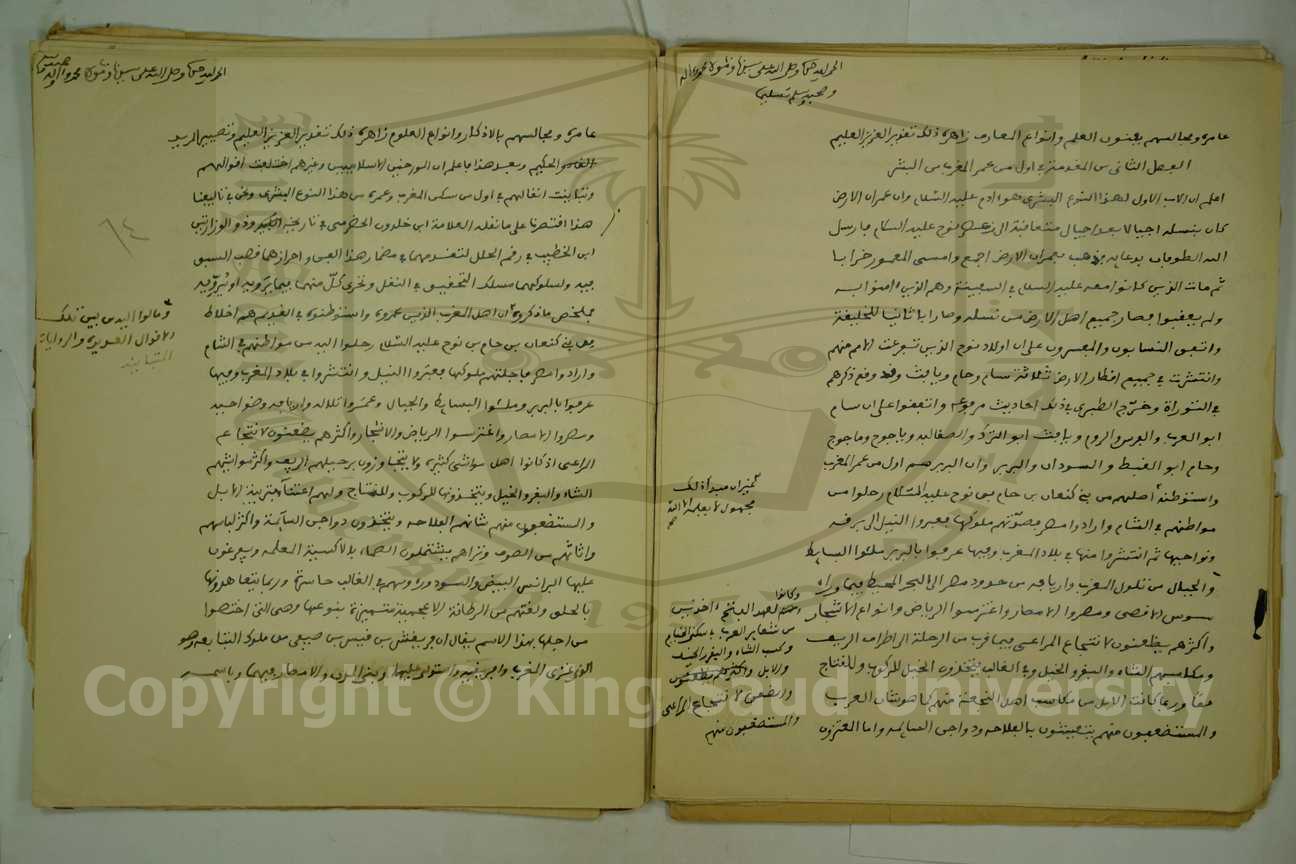 الحمد لله حق وصلى الله على سيدنا ومولانا محمد وآله
وصحبه وسلم تسليما
عامرة ومجالسهم بفنون العلم وانواع المعارف زاهرة ذلك تقدير العزيز العليم
الفصل الثاني من المقدمة في اول من عمر المغرب من البشر
اعلم ان الاب الاول لهذا النوع البشري هو ادم عليه السلام وان عمران الارض
كان بنسله اجيالا بعد اجيال متعاقبة الى زمن نوح عليه السلام فارسل
الله الطوفان بدعائه فذهب بعمران الارض اجمع وامسى المعمور خرابا
ثم مات الذين كانوا معه عليه السلام في السفينة وهم الذين امنوا به
ولم يعقبوا فصار جميع اهل الارض من نسله وصار ابا ثانيا للخليقة
واتفق النسابون والمفسرون على ان اولاد نوح الذين تفرعت الامم منهم
وانتشرت في جميع اقطار الارض ثلاثة سام وحام ويافث وقد وقع ذكرهم
في التوراة وخرج الطبري في ذلك احاديث مرفوعة واتفقوا على ان سام
ابو العرب والفرس والروم ويافث ابو الترك والصقالبة وياجوج وماجوج
وحام ابو القبط والسودان والبربر وان البربر هم اول من عمر المغرب
واستوطنه اصلهم من بني كنعان بن حام بن نوح عليه السلام رحلوا من
مواطنهم في الشام وارادوا مصر فصدتهم ملوكها فعبروا النيل الى برقة
ونواحيها ثم انتشروا منها في بلاد المغرب وفيها عرفوا بالبربر ملئوا البسائط
والجبال من تلول المغرب واريافه من حدود مصر الى البحر المحيط فيما وراء
سوس الاقصى ومصروا الامصار واغترسوا الرياض وانواع الاشجار
واكثرهم يظعنون لانتجاع المراعي فيما قرب من الرحلة الى اطراف الريف
ومكاسبهم الشاء والبقر والخيل وفي الغالب يتخذون الخيل للركوب وللنتاج
فقط وربما كانت الابل من مكاسب اهل النجعة منهم كما هو شان العرب
والمستضعفون منهم يتعيشون بالفلاحة ودواجن السائمة واما المعتزون
غير ان مبدأ ذلك
مجهول لا يعلمه الا الله
وكانوا
لعهد الفتح
من شعائر العرب في سكنى الخيام
وكسب الشاء والبقر والخيل
والابل واكثرهم يظعنون
لانتجاع المراعي
والمستضعفون منهم
الحمد لله حق وصلى الله على سيدنا ومولانا محمد وآله وصحبه
عامرة ومجالسهم بالاذكار وانواع العلوم زاهرة ذلك تقدير العزيز العليم وتصيير المريد
الحكيم وبعد هذا فاعلم ان المورخين الاسلاميين وغيرهم اختلفت اقوالهم
وتباينت انقالهم في اول من سكن المغرب وعمره من هذا النوع البشري ونحن في تاليفنا
هذا اقتصرنا على ما نقله العلامة ابن خلدون الحضرمي في تاريخه الكبير وذو الوزارتين
ابن الخطيب في رقم الحلل لتقدمهما في مضمار هذا الفن واحرازهما قصب السبق
فيه ولسلوكهما مسلك التحقيق في النقل وتحري كل منهما فيما يرويه او يؤيده
فملخص ما ذكروه ان اهل المغرب الذين عمروه واستوطنوه في القديم هم اخلاط
من بني كنعان بن حام بن نوح عليه السلام رحلوا اليه من مواطنهم في الشام
وارادوا مصر فاجلتهم ملوكها فعبروا النيل وانتشروا في بلاد المغرب وفيها
عرفوا بالبربر وملئوا البسائط والجبال وعمروا تلاله واريافه وضواحيه
ومصروا الامصار واغترسوا الرياض والاشجار واكثرهم يظعنون لانتجاع
المراعي اذ كانوا اهل مواشي كثيرة ولا يتجاوزون برحيلهم الريف واكثر مواشيهم
الشاء والبقر والخيل ويتخذونها للركوب وللنتاج ولهم اعتناء بتربية الابل
والمستضعفون منهم شانهم الفلاحة ويتخذون دواجن السائمة واكثر لباسهم
واثاثهم من الصوف وتراهم يشتملون الصماء بالاكسية المعلمة ويفرغون
عليها البرانس البيض والسود ورءوسهم في الغالب حاسرة وربما يتعاهدونها
بالحلق ولغتهم من الرطانة الاعجمية متميزة بنوعها وهي التي اختصوا
من اجلها بهذا الاسم يقال ان افريقش بن قيس بن صيفي من ملوك التبابعة هو
الذي غزى المغرب وافريقية واستولى عليها وبنى المدن والامصار فيهما وباسمه
٦٤
ومالوا اليه من بين تلك
الاقوال العديدة والروايات
المتباينة
Copyright © King Saud University
1957